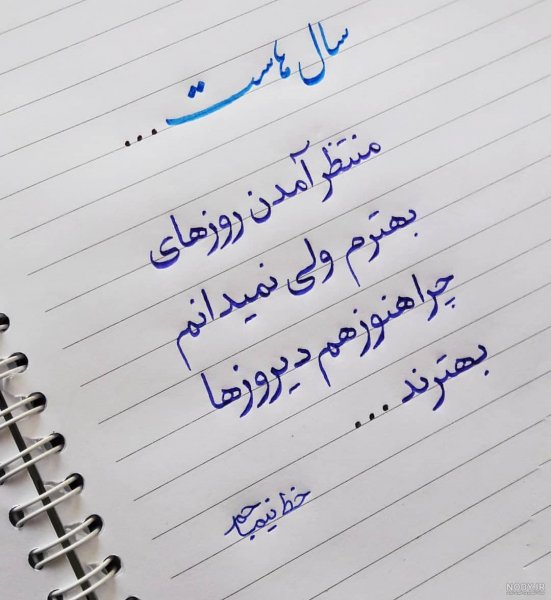 سال هاست
...
منتظر آمدن روزهای
بهترم ولی نمیدانم
چرا هنوز هم دیروزها
بهترند ...
خط نیم
NODY.IR